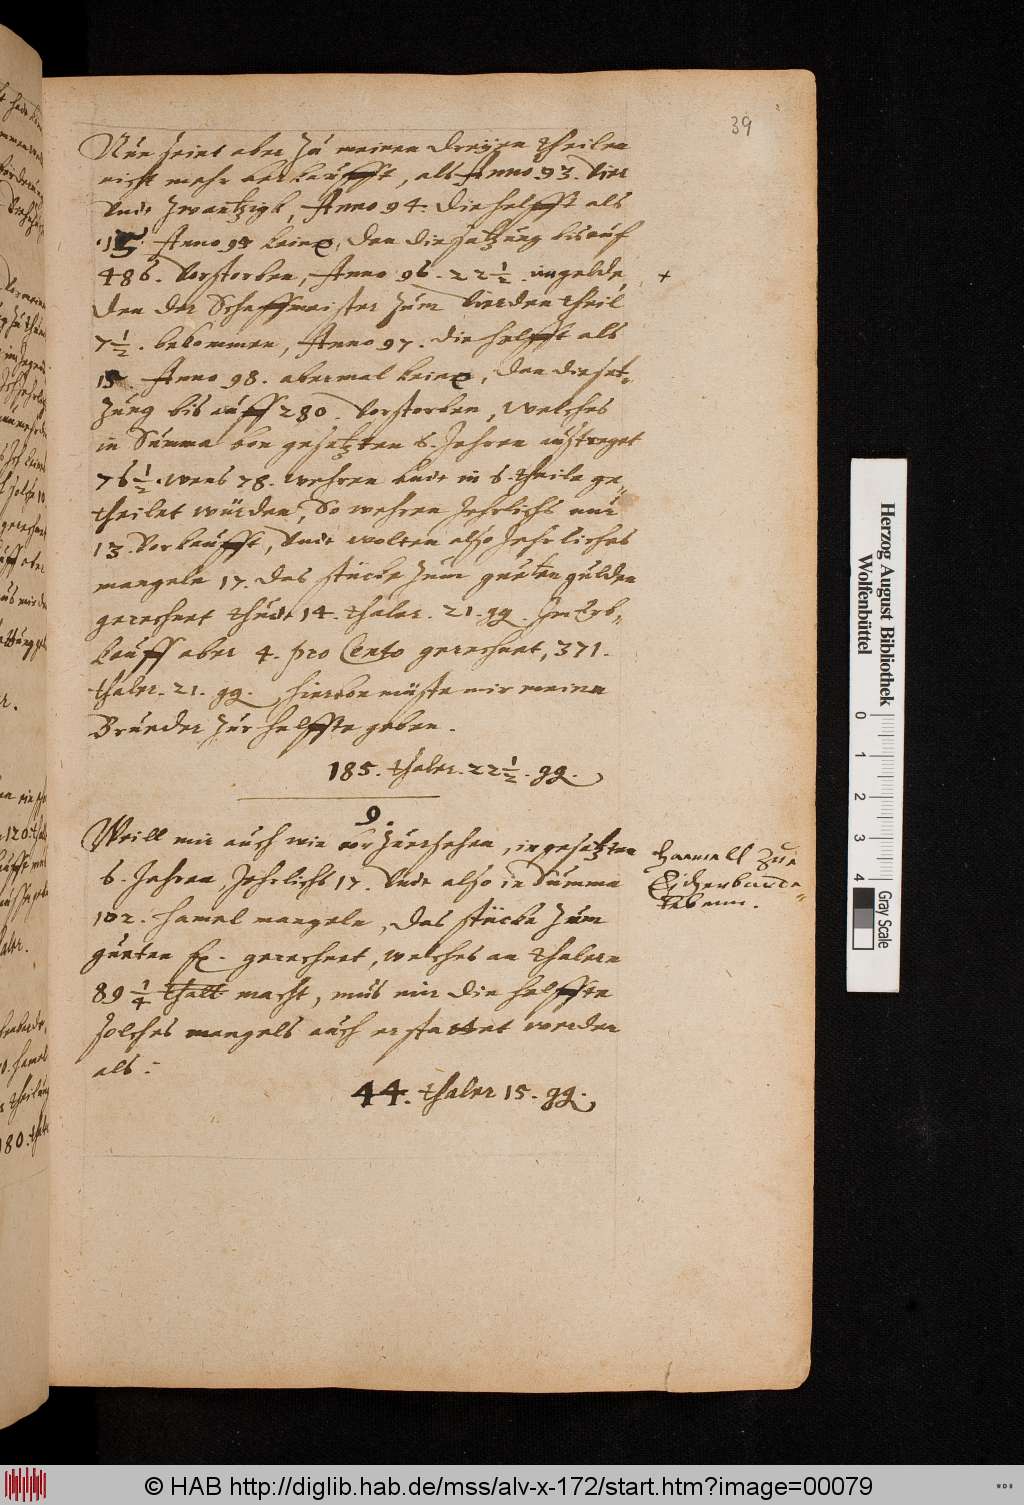 39
Nun seint aber zu meinen dreyen theilen
nicht mehr verkaufft, als Anno 93. vier
undt zwantzigk, Anno 94. die helfft als
15. Anno 95 keine, den die satzung bis auf
486. vorstorben, Anno 96. 22 1/2. ungelde, +
den der Schaffmeister zum vierden theil
7 1/2. bekommen, Anno 97. die helfft als
15. Anno 98. abermal keine, den die sat-
zung bis auff 280. vorstorben, welches
in Summa von gesetzten 6. Jahren austreget
76 1/2. wens 78. wehren undt in 6. theile ge-
theilet würden, So wehren Jehrlichs nur
13. vorkaufft, undt wolten also Jehrliches
mangeln 17. das stücke zum gueten gulden
gerechnet thudt 14. thaler. 21. gg. Im Erb-
kauff aber 4. pro Cento gerechnet, 371.
thaler. 21. gg. hiervon müste mir meine
Brueder zur helffte geben.
185. thaler. 22 1/2. gg.
9.
Weill mir auch wie vor zuersehen, in gesatzten
6. Jahren, Jehrlichs 17. undt also in Summa
102. hamel mangeln, das stücke zum
gueten fl. gerechnet, welches an thalern
89 1/4 thall macht, mus mir die helffte
solches mangels auch erstattet werden
als:
44. thaler 15. gg.
Hammell zue
Eichenbarde-
leben.
Herzog August Bibliothek
Wolfenbüttel
0 1 2 3 4
Gray Scale
© HAB http://diglib.hab.de/mss/alv-x-172/start.htm?image=00079